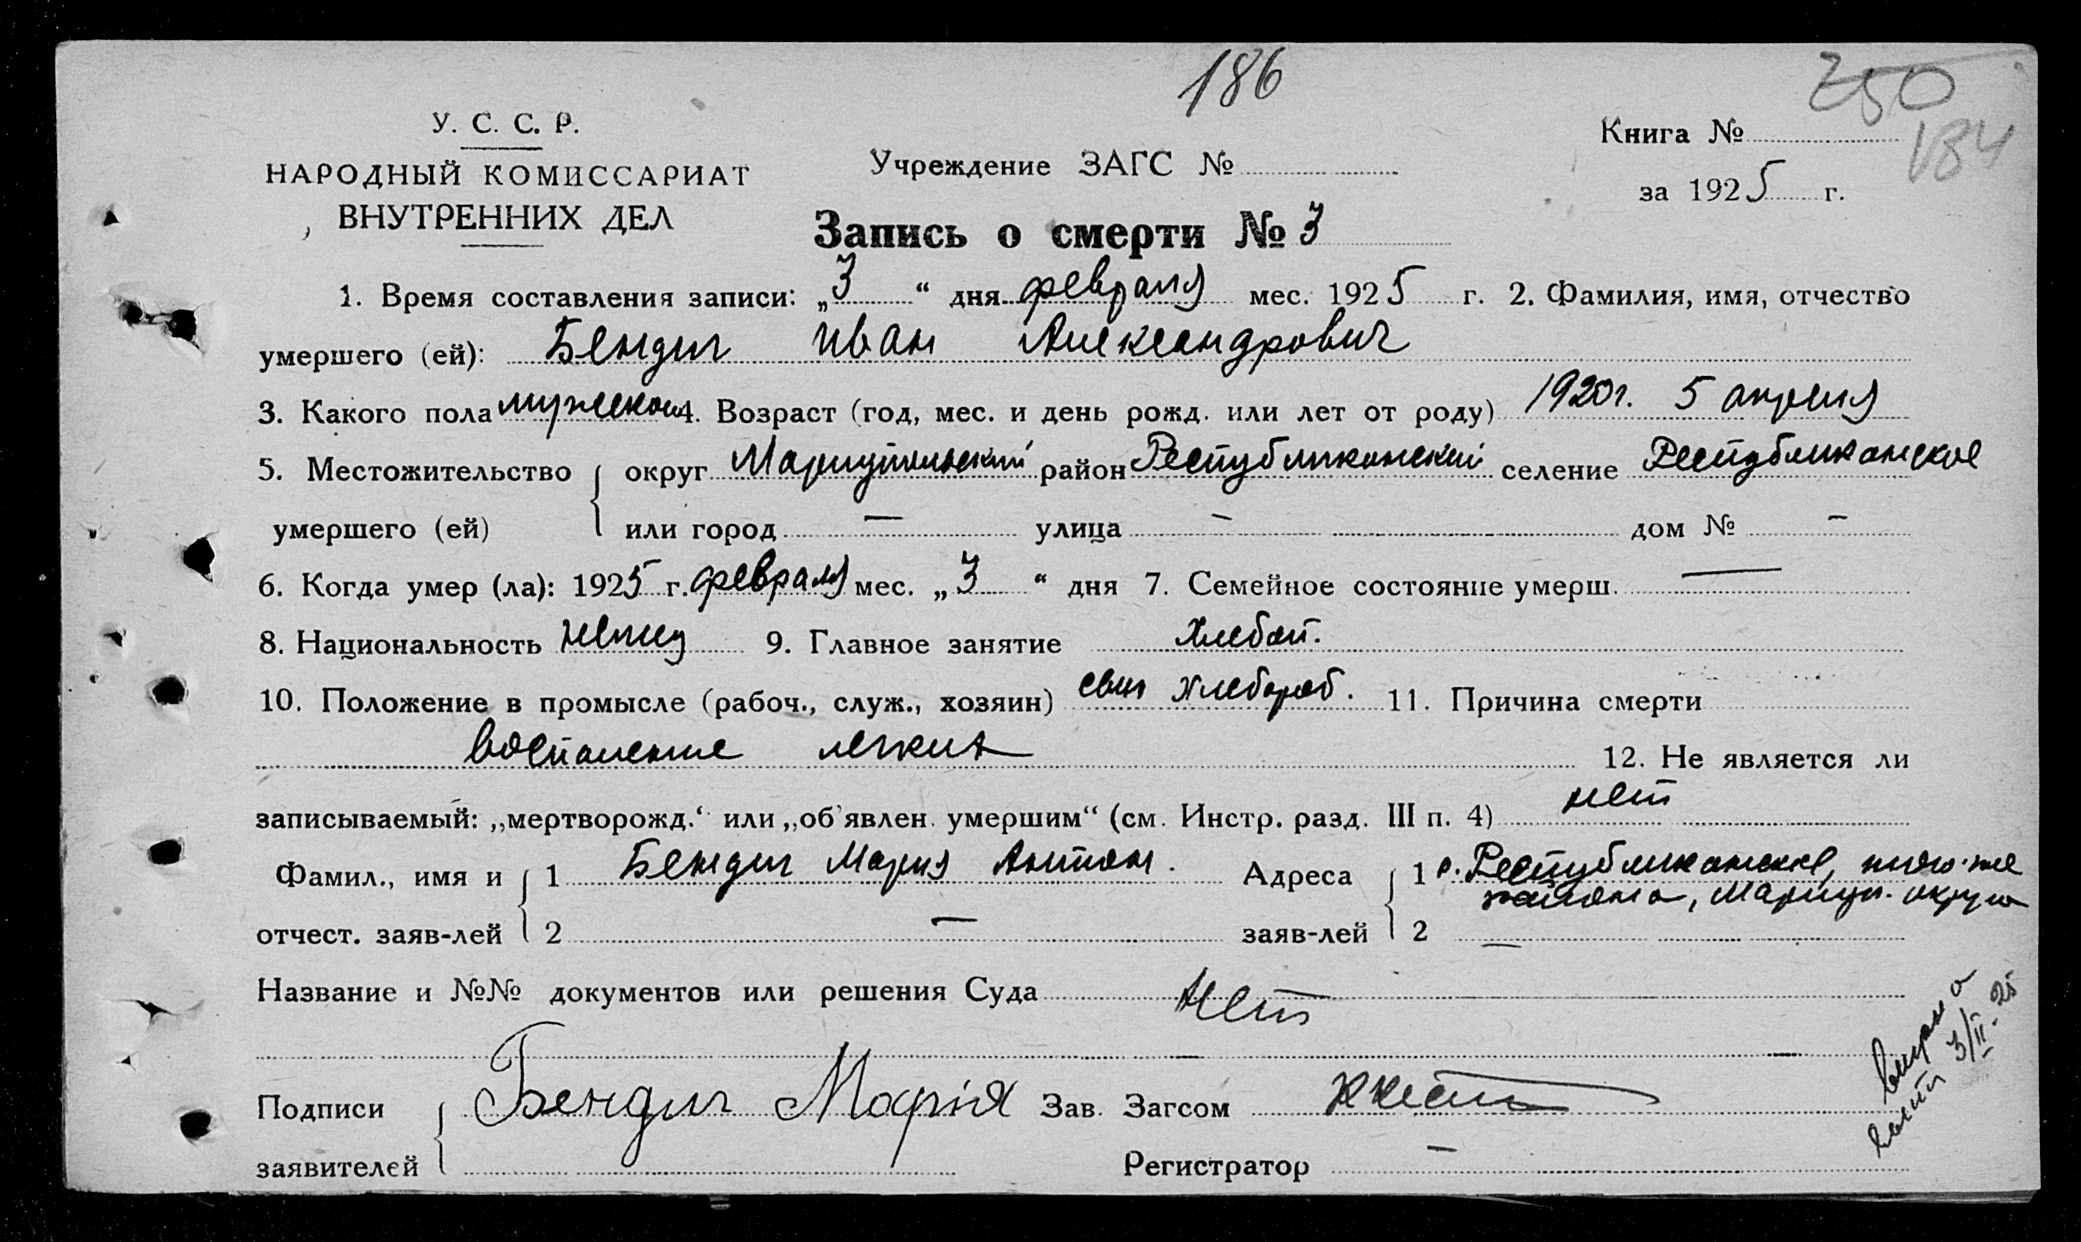 186
250
184
У. С. С. Р.
НАРОДНЫЙ КОМИССАРИАТ
ВНУТРЕННИХ ДЕЛ
Учреждение ЗАГС №
Книга №
за 1925 г.
Запись о смерти № 3
1. Время составления записи: „3“ дня февраля мес. 1925 г. 2. Фамилия, имя, отчество
умершего (ей): Бендик Иван Александрович
3. Какого пола мужской 4. Возраст (год, мес. и день рожд. или лет от роду) 1920г. 5 апреля
5. Местожительство округ Мариупольский район Республиканский селение Республиканское
умершего (ей) или город — улица — дом № —
6. Когда умер (ла): 1925 г. февраля мес. „3“ дня 7. Семейное состояние умерш. —
8. Национальность немец 9. Главное занятие Хлебоп.
10. Положение в промысле (рабоч., служ., хозяин) сын хлебороб. 11. Причина смерти
воспаление легких 12. Не является ли
записываемый: „мертворожд.‘ или „об'явлен. умершим“ (см. Инстр. разд. III п. 4) нет
Фамил., имя и 1 Бендик Мария Антон. Адреса 1 с. Республиканское, того-же
района, Мариуп. округа
отчест. заяв-лей 2 — заяв-лей 2 —
Название и №№ документов или решения Суда нет
Подписи Бендик Марія Зав. Загсом
заявителей Регистратор —
3/II-25